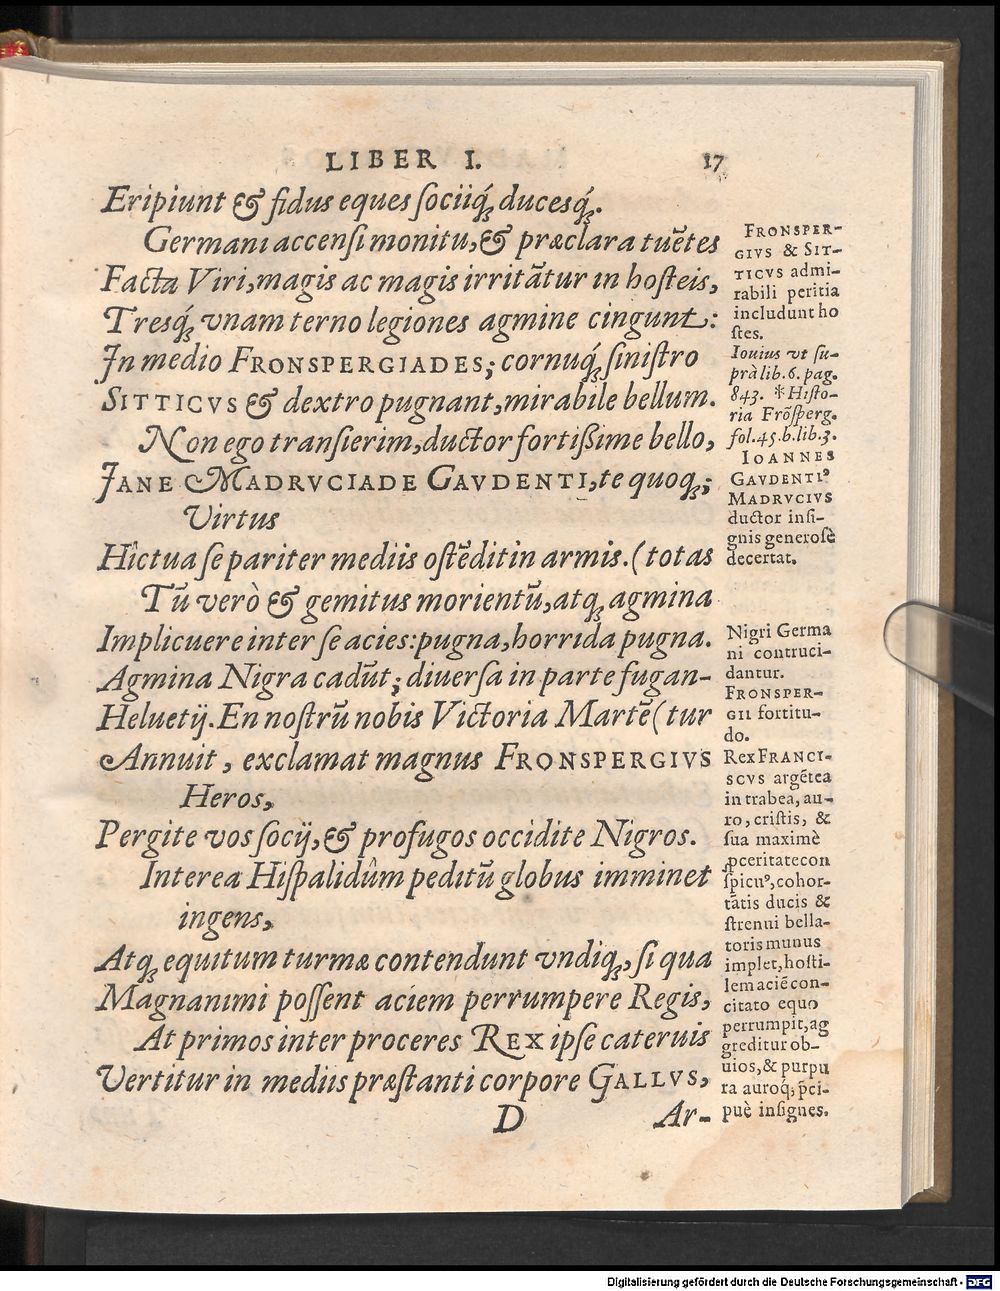 LIBER I. 17
Eripiunt & fidus eques sociiq́; ducesq́;.
Germani accensi monitu, & præclara tuētes
Facta Viri, magis ac magis irritātur in hosteis,
Tresq́; vnam terno legiones agmine cingunt:
In medio FRONSPERGIADES; cornuq́; sinistro
SITTICVS & dextro pugnant, mirabile bellum.
Non ego transierim, ductor fortißime bello,
JANE MADRVCIADE GAVDENTI, te quoq;;
Virtus
Hîc tua se pariter mediis ostēdit in armis. (totas
Tū verò & gemitus morientū, atq; agmina
Implicuere inter se acies: pugna, horrida pugna.
Agmina Nigra cadūt; diuersa in parte fugan-
Heluetij. En nostrū nobis Victoria Martē (tur
Annuit, exclamat magnus FRONSPERGIVS
Heros,
Pergite vos socij, & profugos occidite Nigros.
Interea Hispalidûm peditū globus imminet
ingens,
Atq; equitum turmæ contendunt vndiq;, si qua
Magnanimi possent aciem perrumpere Regis,
At primos inter proceres REX ipse cateruis
Vertitur in mediis præstanti corpore GALLVS,
D Ar-
FRONSPER-
GIVS & SIT-
TICVS admi-
rabili peritia
includunt ho
stes.
Iouius vt su-
prà lib. 6. pag.
843. * Histo-
ria Frōsperg.
fol. 45. b. lib. 3.
IOANNES
GAVDENTIꝰ
MADRVCIVS
ductor insi-
gnis generosè
decertat.
Nigri Germa
ni contruci-
dantur.
FRONSPER-
GII fortitu-
do.
Rex FRANCI-
SCVS argētea
in trabea, au-
ro, cristis, &
sua maximè
ꝓceritate con
spicuꝰ, cohor-
tātis ducis &
strenui bella-
toris munus
implet, hosti-
lem aciē con-
citato equo
perrumpit, ag
greditur ob-
uios, & purpu
ra auroq́; p̄ci-
puè insignes.
Digitalisierung gefördert durch die Deutsche Forschungsgemeinschaft - DFG